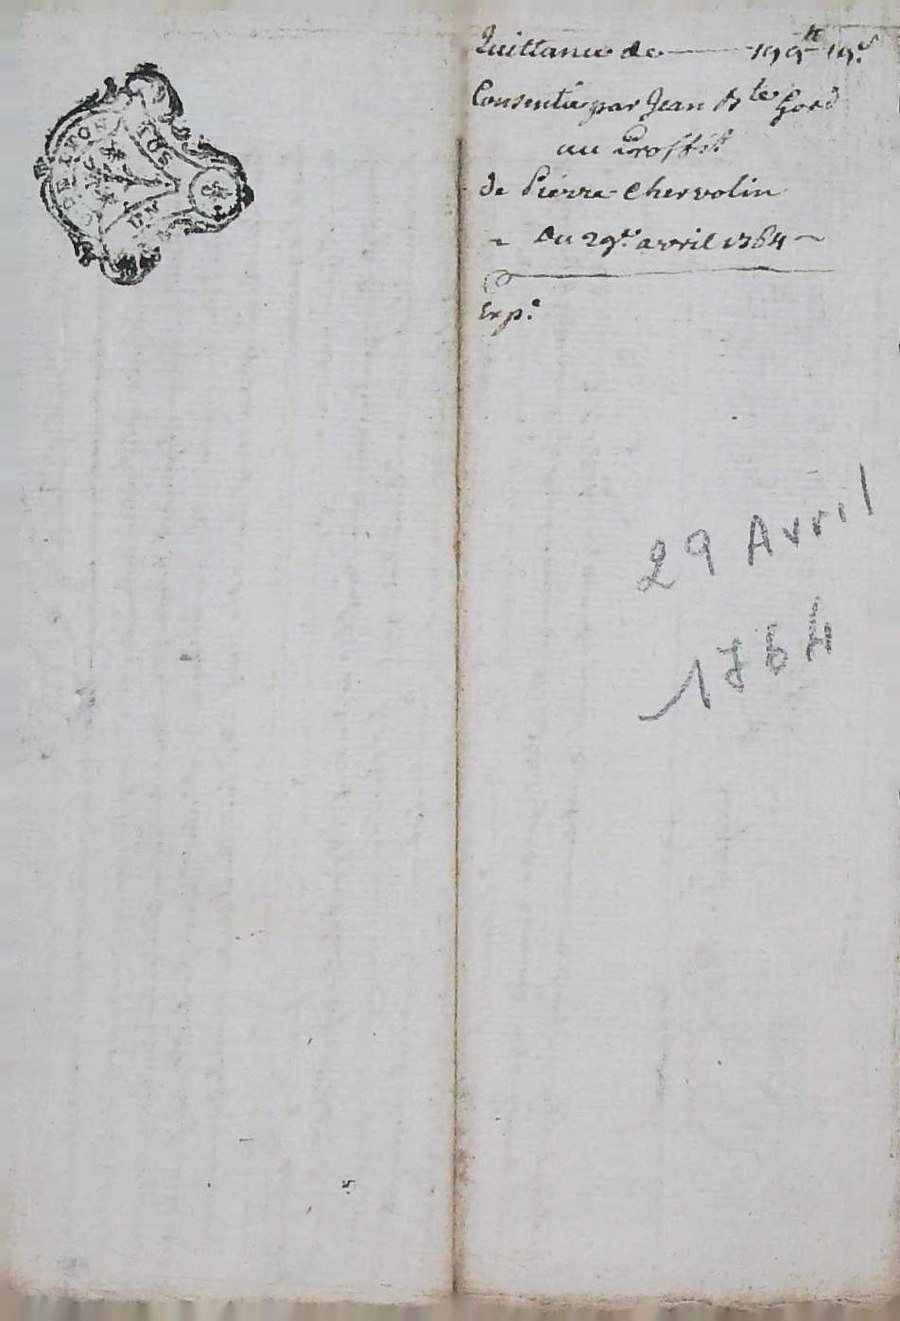 Quittance de — 199tt 19s
Consentie par Jean Bte Gord
au proffit
de Pierre Chervolin
~ Du 29e avril 1764 ~
Expe
29 Avril
1764
DE LYON
UN